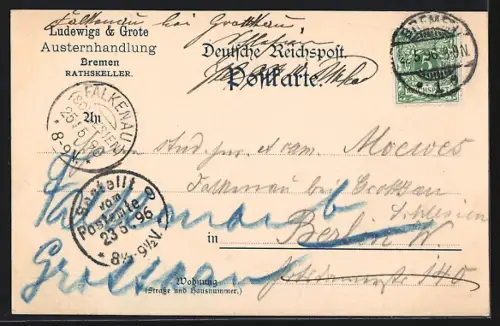 Falkenau bei Grottkau
Schlesien
Ludewigs & Grote
Austernhandlung
Bremen
RATHSKELLER.
Deutsche Reichspost.
Postkarte.
BREMEN
5.96.
FALKENAU
(SCHLESIEN)
25/5 96
* 8-9V. *
An
Stud. jur. et cam. Moewes
Falkenau b
Falkenau b
Grottkau
Schlesien
Bestellt
vom
Postamte 9
23/5 96
* 8¼-9½V.
in Berlin W.
Grottkau
140
Wohnung
(Straße und Hausnummer.)